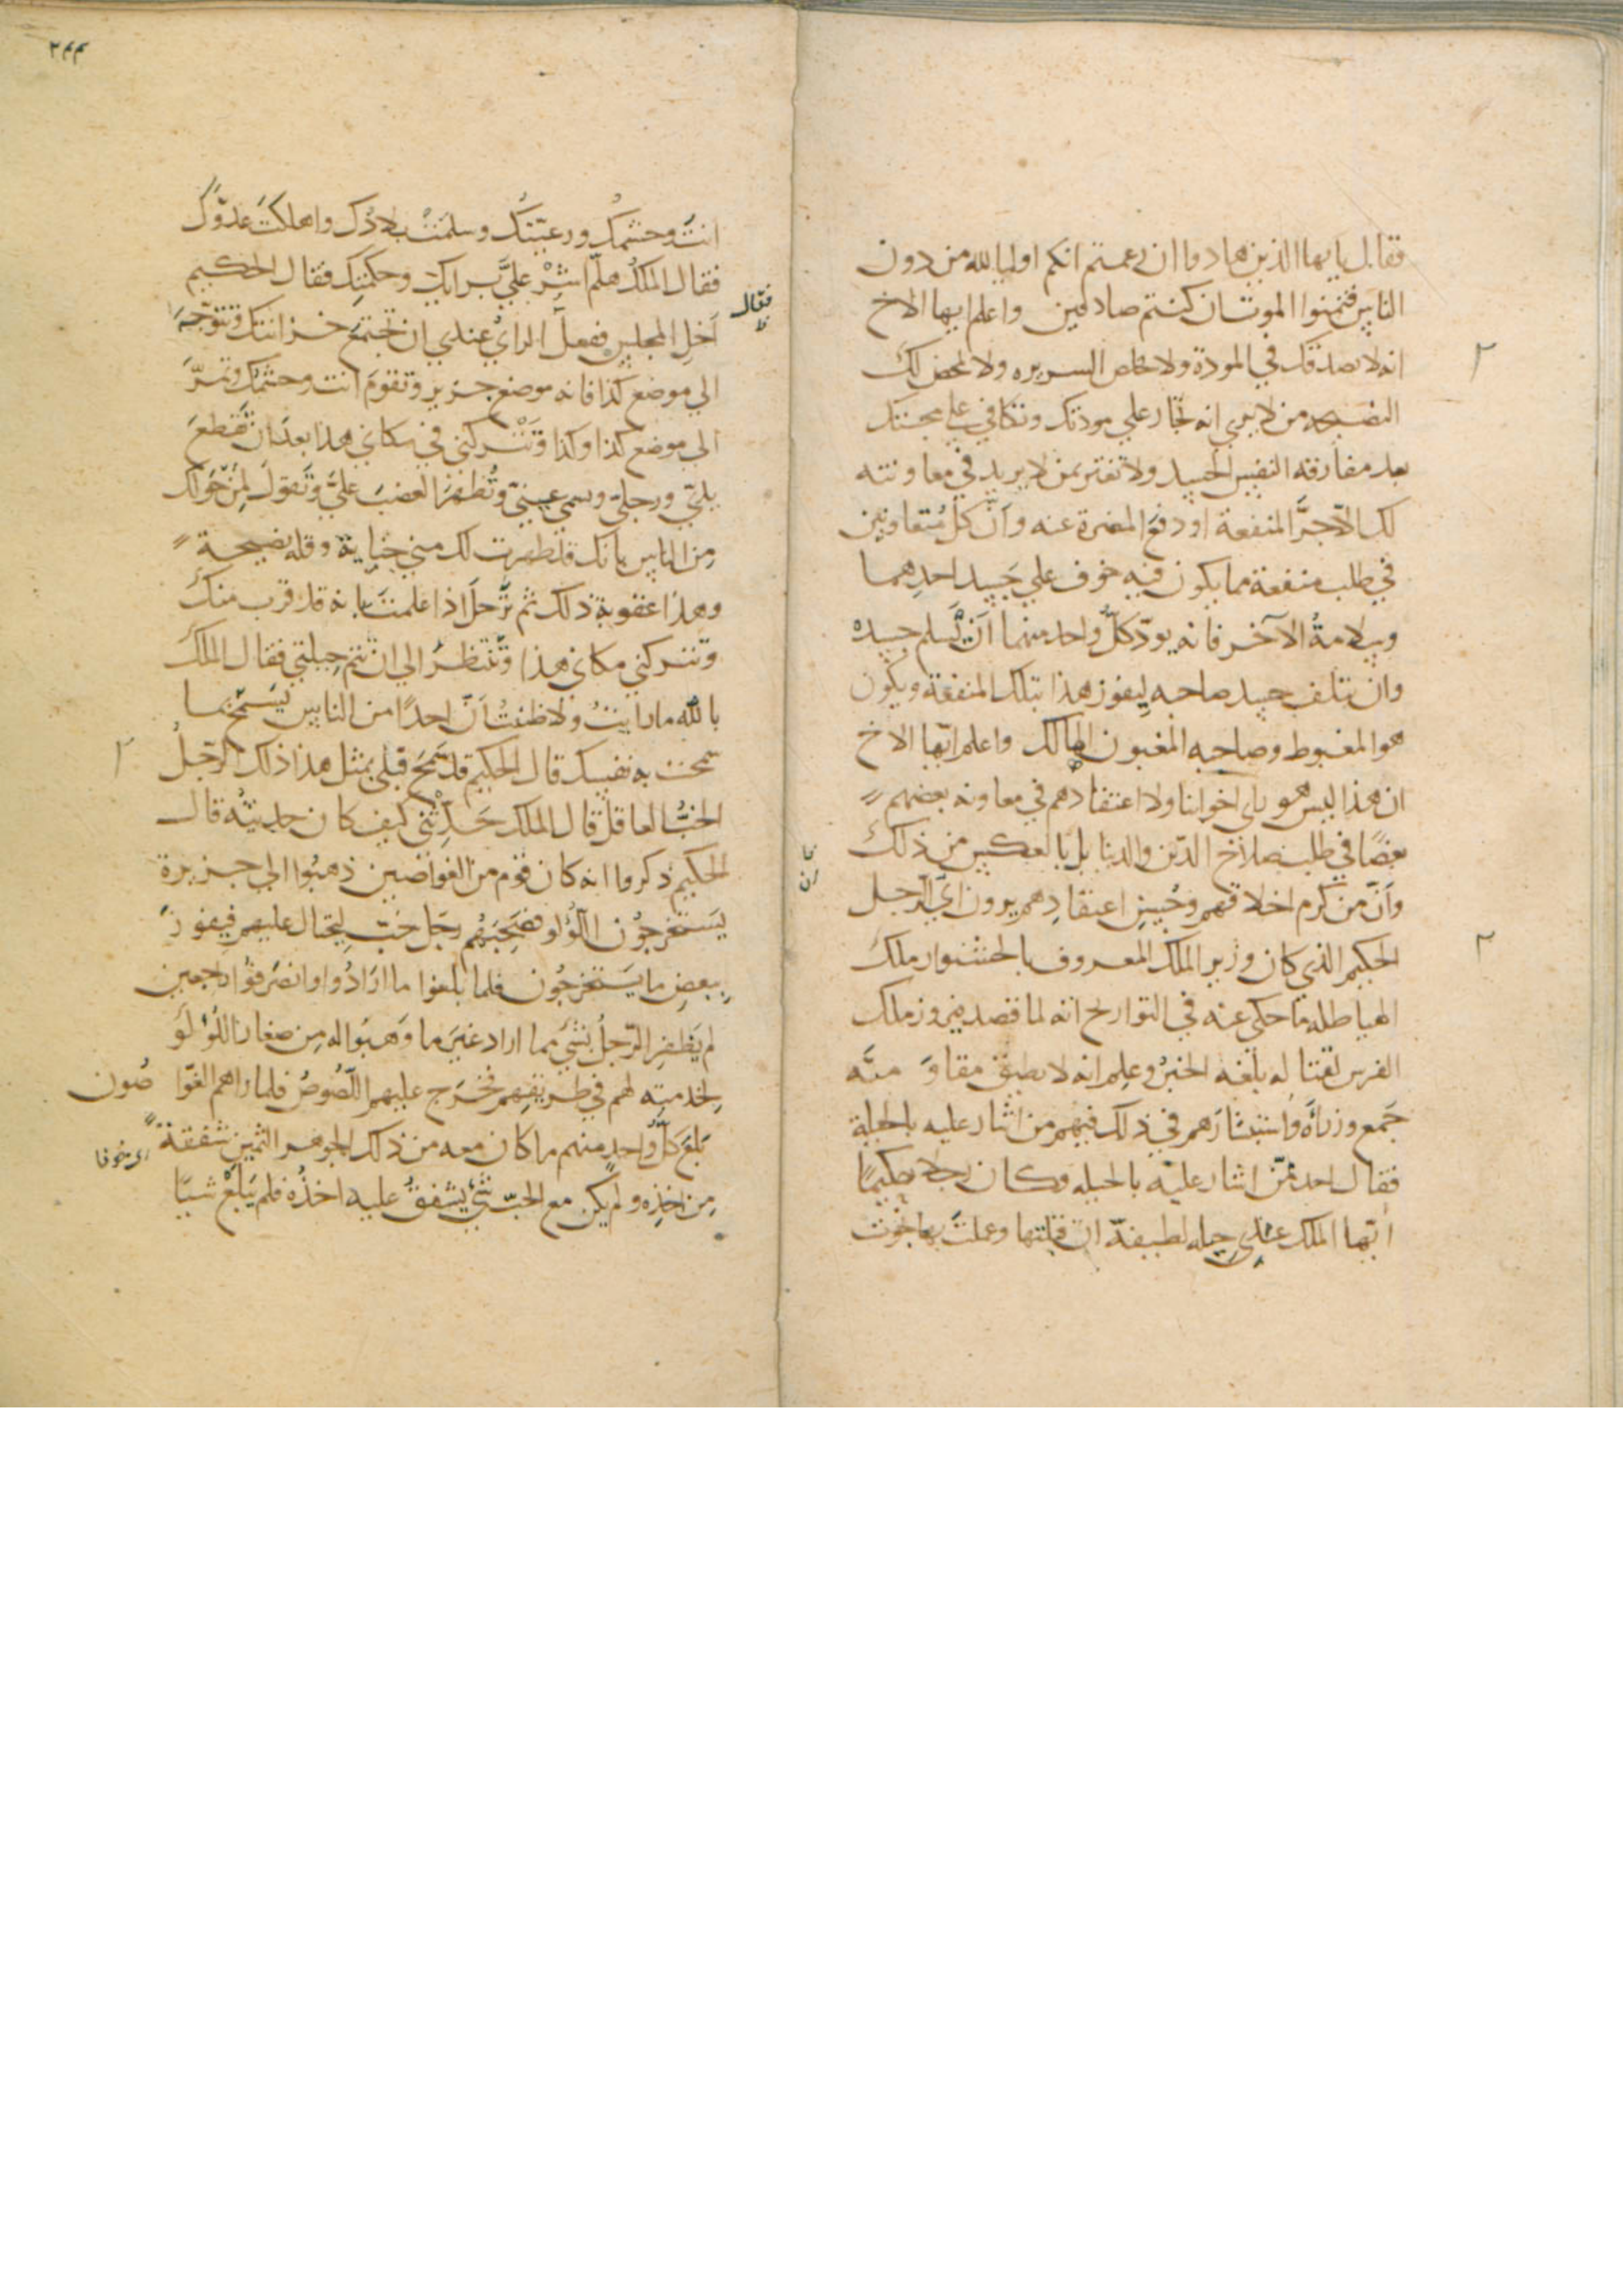 فقال يا يها الذين هادوا ان زعمتم انكم اوليا لله من دون
الناس فتمنوا الموت ان كنتم صادقين واعلم ايها الاخ
انه لا يصدقك في المودة ولا يخلص السريره ولا يمحض لك
النصيحه من لا يري انه يجار علي مودتك وتكافي علي محبتك
بعد مفارقه النفس الجسد ولا تغتر بمن لا يريد في معاونته
لك الا جر المنفعة او دفع المضرة عنه وان كل متعاونين
في طلب منفعة مما يكون فيه خوف علي جسد احدهما
وسلامة الآخر فانه يود كل واحد منهما ان يسلم جسده
وان تلف جسد صاحبه ليفوز هذا بتلك المنفعة ويكون
هو المغبوط وصاحبه المغبون الهالك واعلم ايها الاخ
ان هذا ليس هو راي اخواننا ولا اعتقادهم في معاونه بعضهم
بعضا في طلب صلاح الدين والدنيا بل بالعكس من ذلك
وان من كرم اخلاقهم وحسن اعتقادهم يرون راي الرجل
الحكيم الذي كان وزير الملك المعروف بالحشنوار ملك
الهياطله ما حكي عنه في التواريخ انه لما قصد فيروز ملك
الفرس لقتاله بلغه الخبر وعلم انه لا يطيق مقاومته
جمع وزراه واستشارهم في ذلك فمنهم من اشار عليه بالحيلة
فقال احد ممن اشار عليه بالحيله وكان رجلا حكيما
ايها الملك عندي حيله لطيفة ان قبلتها وعملت بها نجوت
٢٤٤
انت وحشمك ورعيتك وسلمت بلادك واهلكت عدوك
فقال الملك هلم اشر علي برايك وحكمتك فقال الحكيم
اخل المجلس ففعل الراي عندي ان تجتمع خزانتك وتتوجه
فقال
ظ
الي موضع كذا فانه موضع حريز وتقوم انت وحشمك وتمر
الي موضع كذا وكذا وتتركني في مكاني هذا بعد ان تقطع
يدي ورجلي وسمل عيني وتظهر الغضب علي وتقول لمن حولك
من الناس بانك قد ظهرت لك مني خيانة وقله نصيحة
وهذا عقوبة ذلك ثم ترحل اذا علمت بانه قد قرب منك
وتتركني مكاني هذا وتنتظر الي ان تتم حيلتي فقال الملك
بالله ما رايت ولا ظننت ان احدا من الناس يسمح بما
سمحت به نفسك قال الحكيم قد سمح قبلي بمثل هذا ذلك الرجل
الخب العاقل قال الملك حدثني كيف كان حديثه قال
الحكيم ذكروا انه كان قوم من الغواصين ذهبوا الي جزيرة
يستخرجون اللؤلؤ فصحبهم رجل خب ليحتال عليهم فيفوز
ببعض ما يستخرجون فلما بلغوا ما ارادوا وانصرفوا راجعين
لم يظفر الرجل بشي مما اراد غير ما وهبوا له من صغار اللؤلؤ
لخدمته لهم في طريقهم فخرج عليهم اللصوص فلما راهم الغوا صون
بلع كل واحد منهم ما كان معه من ذلك الجوهر الثمين شفقة
اي خوفا
من اخذه ولم يكن مع الخب شي يشفق عليه اخذه فلم يبلع شيا